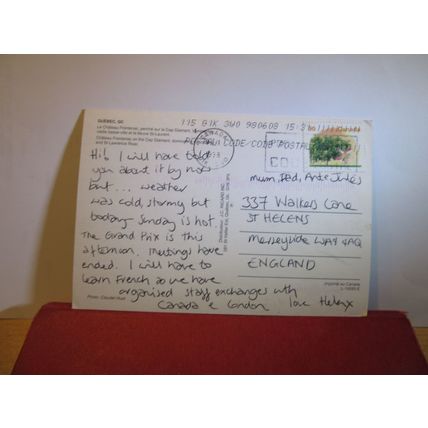 QUÉBEC, QC
Le Château Frontenac, perché sur le Cap Diamant,
vieille basse-ville et le fleuve St-Laurent.
Château Frontenac, on the Cap Diamant,
and St-Lawrence River.
115 G1K 3W0 980608 15:3
POSTAL CODE/CODE POSTAL
CANADA
Hi! I will have told
you about it by now
but ... weather
was cold, stormy but
today Sunday is hot.
The Grand Prix is this
afternoon. Meetings have
ended. I will have to
learn French as we have
organised staff exchanges with
Canada & London love Helen x
Mum, Dad,
337 Walkers Lane
ST HELENS
Merseyside WA9 4AQ
ENGLAND
Imprimé au Canada